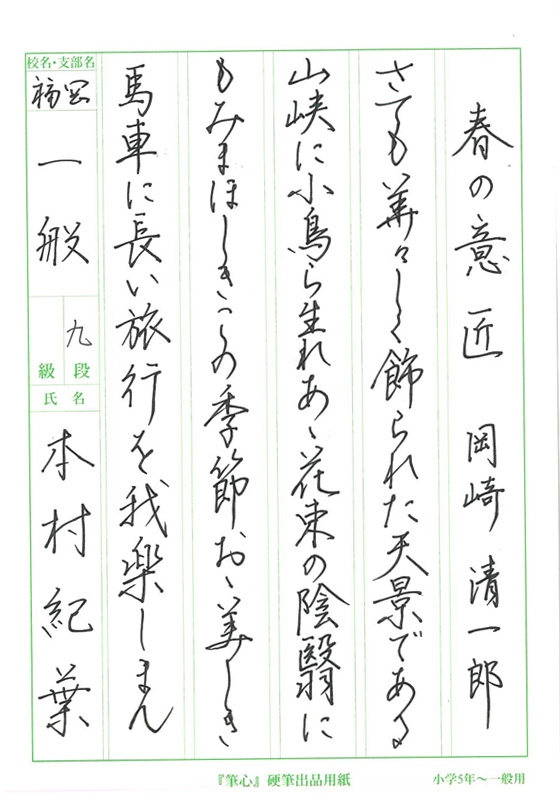 春の意匠 岡崎清一郎
さても華々しく飾られた天景である
山峡に小鳥ら生れあゝ花束の陰翳に
もみまほしきこの季節おゝ美しき
馬車に長い旅行を我楽しまん
校名・支部名
福岡
一般
九段
級
氏名
本村紀葉
『筆心』硬筆出品用紙
小学5年～一般用